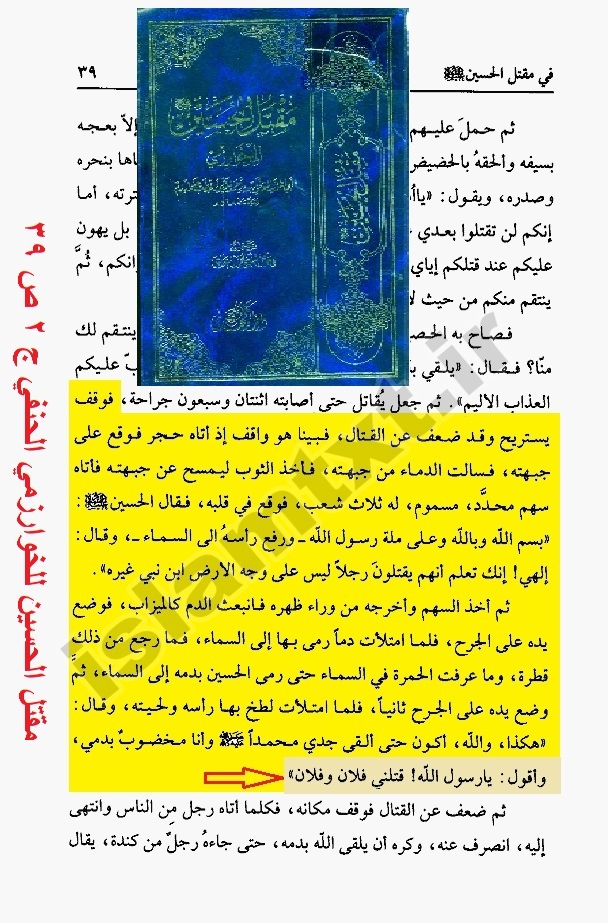 في مقتل الحسين ﷺ
٣٩
ثم حملَ عليهم
إلاّ بعجه
بسيفه وألحقهُ بالحضيض
اها بنحره
وصدره، ويقول: «ياأ
ترته، أما
إنكم لن تقتلوا بعدي
بل يهون
عليكم عند قتلكم إياي
انكم، ثُمَّ
ينتقم منكم من حيث لا
فصاح به الحص
ينتقم لك
منّا؟ فقال: «يلقي ب
بّ عليكم
العذاب الأليم». ثم جعل يُقاتل حتى أصابته اثنتان وسبعون جراحة، فوقف
يستريح وقد ضعف عن القتال، فبينا هو واقف إذ أتاه حجر فوقع على
جبهته، فسالت الدماء من جبهته، فأخذ الثوب ليمسح عن جبهته فأتاه
سهم محدَّد، مسموم، له ثلاث شعب، فوقع في قلبه، فقال الحسين ﷺ:
«بسم الله وبالله وعلى ملة رسول الله ـ ورفع رأسهُ الى السماء ـ، وقال:
إلهي! إنك تعلم أنهم يقتلونَ رجلاً ليس على وجه الأرض ابن نبي غيره».
ثم أخذ السهم وأخرجه من وراء ظهره فانبعث الدم كالميزاب، فوضع
يده على الجرح، فلما امتلأت دماً رمى بها إلى السماء، فما رجع من ذلك
قطرة، وما عرفت الحمرة في السماء حتى رمى الحسين بدمه إلى السماء، ثمَّ
وضع يده على الجرح ثانياً، فلما امتلأت لطخ بها رأسه ولحيته، وقال:
«هكذا، والله، أكون حتى ألقى جدي محمداً ﷺ وأنا مخضوبٌ بدمي،
وأقول: يارسول الله! قتلني فلان وفلان»
ثم ضعف عن القتال فوقف مكانه، فكلما أتاه رجل مِن الناس وانتهى
إليه، انصرف عنه، وكره أن يلقى الله بدمه، حتى جاءهُ رجلٌ من كندة، يقال
مقتل الحسين
للخوارزمي
مقتل الحسين
مقتل الحسين للخوارزمي الحنفي ج ٢ ص ٣٩
islamtxt.ir